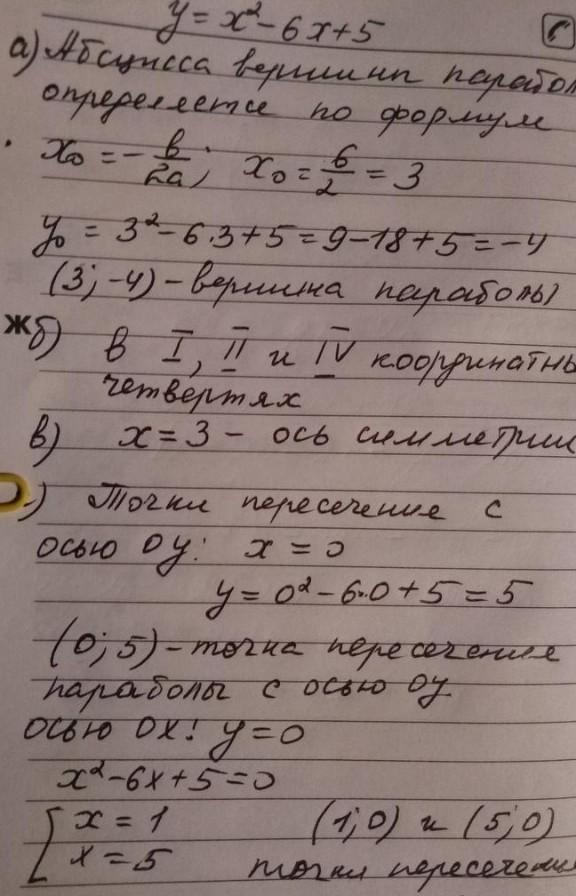 y = x² - 6x + 5
а) Абсцисса вершины парабол
определяется по формуле
x₀ = - в/2a; x₀ = 6/2 = 3
y₀ = 3² - 6·3 + 5 = 9 - 18 + 5 = -4
(3; -4) - вершина параболы
Ж
б) в I, II и IV координатны
четвертях
в) x = 3 - ось симметрии
) Точки пересечение с
осью ОУ: x = 0
y = 0² - 6·0 + 5 = 5
(0; 5) - точка пересечения
параболы с осью ОУ
осью ОХ: y = 0
x² - 6x + 5 = 0
[ x = 1 (1; 0) и (5; 0)
x = 5 точки пересечения